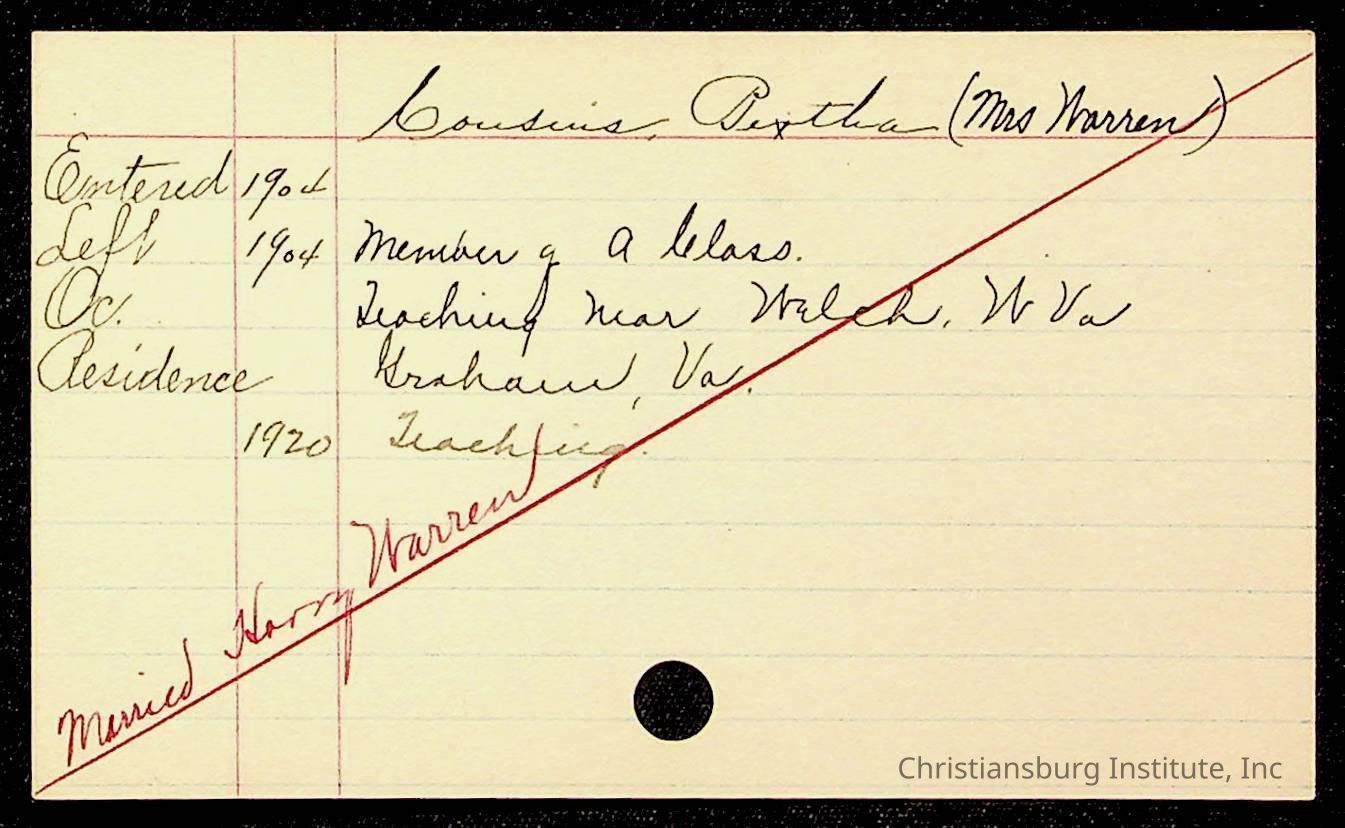 Cousins, Bertha (Mrs Warren)
Entered 1904
Left 1904 Member of A Class.
Oc. Teaching near Welch, W Va
Residence Graham, Va.
1920 Teaching.
Married Harry Warren
Christiansburg Institute, Inc